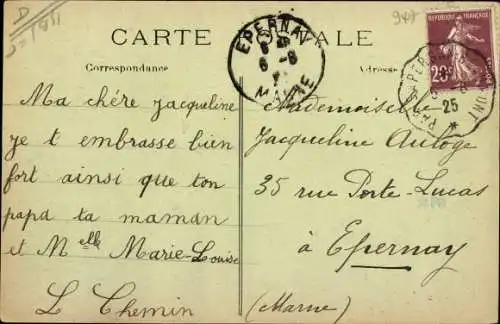 D
J=1911
947
CARTE POSTALE
Correspondance
Adresse
EPERNAY
6 -8
MARNE
REPUBLIQUE FRANÇAISE
20c
25
Ma chére Jacqueline
je t embrasse bien
fort ainsi que ton
papa ta maman
et Melle Marie-Louise
L Chemin
Mademoiselle
Jacqueline
35 rue Porte-Lucas
à Epernay
(Marne)